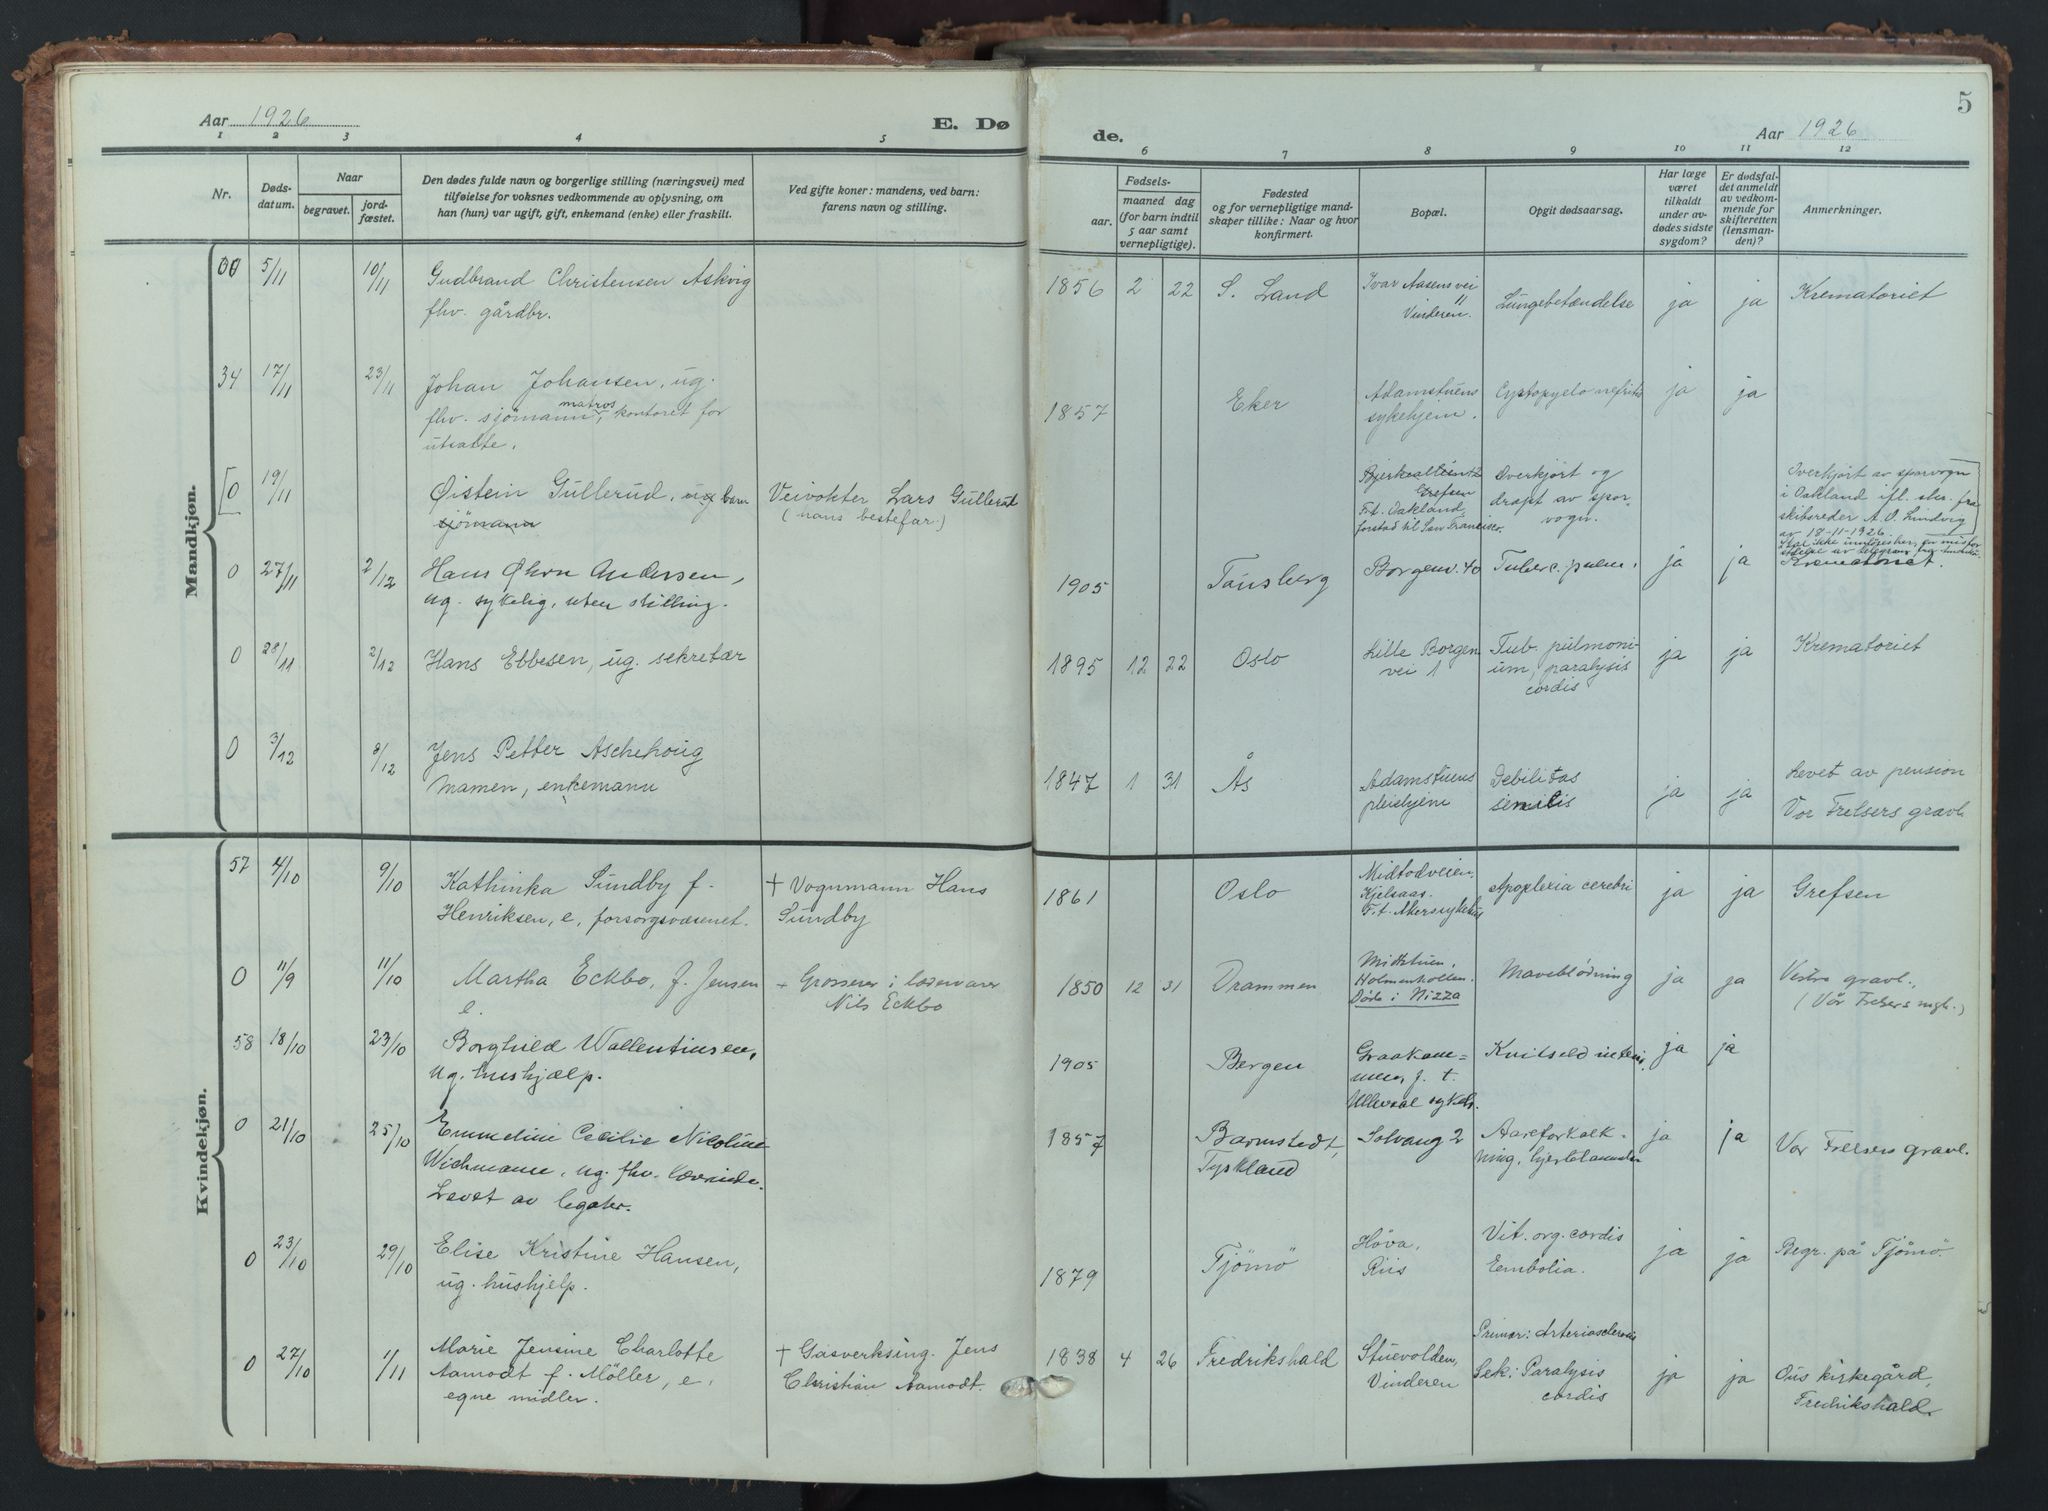 Aar 1926
E. Dø
de.
Aar 1926
5
1 2 3 4 5 6 7 8 9 10 11 12
Nr.
Døds-
datum.
Naar
begravet.
jord-
fæstet.
Den dødes fulde navn og borgerlige stilling (næringsvei) med
tilføielse for voksnes vedkommende av oplysning, om
han (hun) var ugift, gift, enkemand (enke) eller fraskilt.
Ved gifte koner: mandens, ved barn:
farens navn og stilling.
Fødsels-
aar.
maaned dag
(for barn indtil
5 aar samt
vernepligtige).
Fødested
og for vernepligtige mand-
skaper tillike: Naar og hvor
konfirmert.
Bopæl.
Opgit dødsaarsag.
Har læge
været
tilkaldt
under av-
dødes sidste
sygdom?
Er dødsfal-
det anmeldt
av vedkom-
mende for
skifteretten
(lensman-
den)?
Anmerkninger.
Mandkjøn.
5/11 10/11 Gudbrand Christensen Askvig
fhv. gårdbr.
1856 2 22 S. Land
Ivar Aasens vei
11
Vinderen.
Lungebetændelse ja ja Krematoriet
34 17/11 23/11 Johan Johansen, ug.
matros
fhv. sjömann, kontoret for
utsatte.
1857 Eker
Adamstuens
sykehjem.
Cystopyelo nefritis ja ja
[0 19/11 Øistein Gullerud, ug barn
sjömann
Veivokter Lars Gullerud
(hans bestefar.)
Grefsen
F.t. Oakland,
forstad til San Francisco.
Overkjørt og
dræpt av spor-
vogn.
Overkjørt av sporvogn
i Oakland ifl. skr. fra
skibsreder A. O. Lindvig
av 18-11-1926.
0 27/11 2/12 Hans Øhrn Andersen,
ug. sykelig, uten stilling.
1905 Tönsberg Borgenv. 40 Tuberc. pulm. ja ja Krematoriet.
0 28/11 2/12 Hans Ebbesen, ug. sekretær
1895 12 22 Oslo
Lille Borgen
vei 1
Tub. pulmoni-
um, paralysis
cordis
ja ja Krematoriet
0 3/12 8/12 Jens Petter Aschehoug
Mamen, enkemann
1847 1 31 Ås
Adamstuens
pleiehjem
Debilitas
senilis
ja ja
Levet av pension
Vor Frelsers gravl.
Kvindekjøn.
57 4/10 9/10 Kathinka Sundby f.
Henriksen, e, forsorgsvæsenet.
+ Vognmann Hans
Sundby
1861 Oslo
Midtodveien,
Kjelsaas.
F.t. Akersykehus
Apoplexia cerebri ja ja Grefsen
0 11/9 11/10 Martha Eckbo, f. Jensen
e.
+ Grosserer i lædervarer
Nils Eckbo
1850 12 31 Drammen
Midtstuen,
Holmenkollen.
Døde i Nizza
Maveblødning ja ja
Vestre gravl.,
(Vår Frelsers mgl.)
58 18/10 23/10 Borghild Wallentinsen,
ug. hushjælp.
1905 Bergen
Graakam-
men, f. t.
Ullevaal sykeh.
ja ja
0 21/10 25/10 Emmeline Cecilie Nicoline
Wichmann, ug. fhv. lærerinde.
Levet av legater.
1857 Barmstedt,
Tyskland
Solvang 2
Aareforkalk-
ning, hjertelammelse
ja ja Vor Frelsers gravl.
0 23/10 29/10 Elise Kristine Hansen,
ug. hushjelp.
1879 Tjömö
Höva,
Riis
Vit. org. cordis
Embolia.
ja ja Begr. på Tjömö
0 27/10 1/11 Marie Jensine Charlotte
Aamodt f. Möller, e,
egne midler.
+ Gasverksing. Jens
Christian Aamodt.
1838 4 26 Fredrikshald
Stuevolden,
Vinderen
Primær: Arteriosclerosis
Sek: Paralysis
cordis
ja ja
Ous kirkegård,
Fredrikshald.